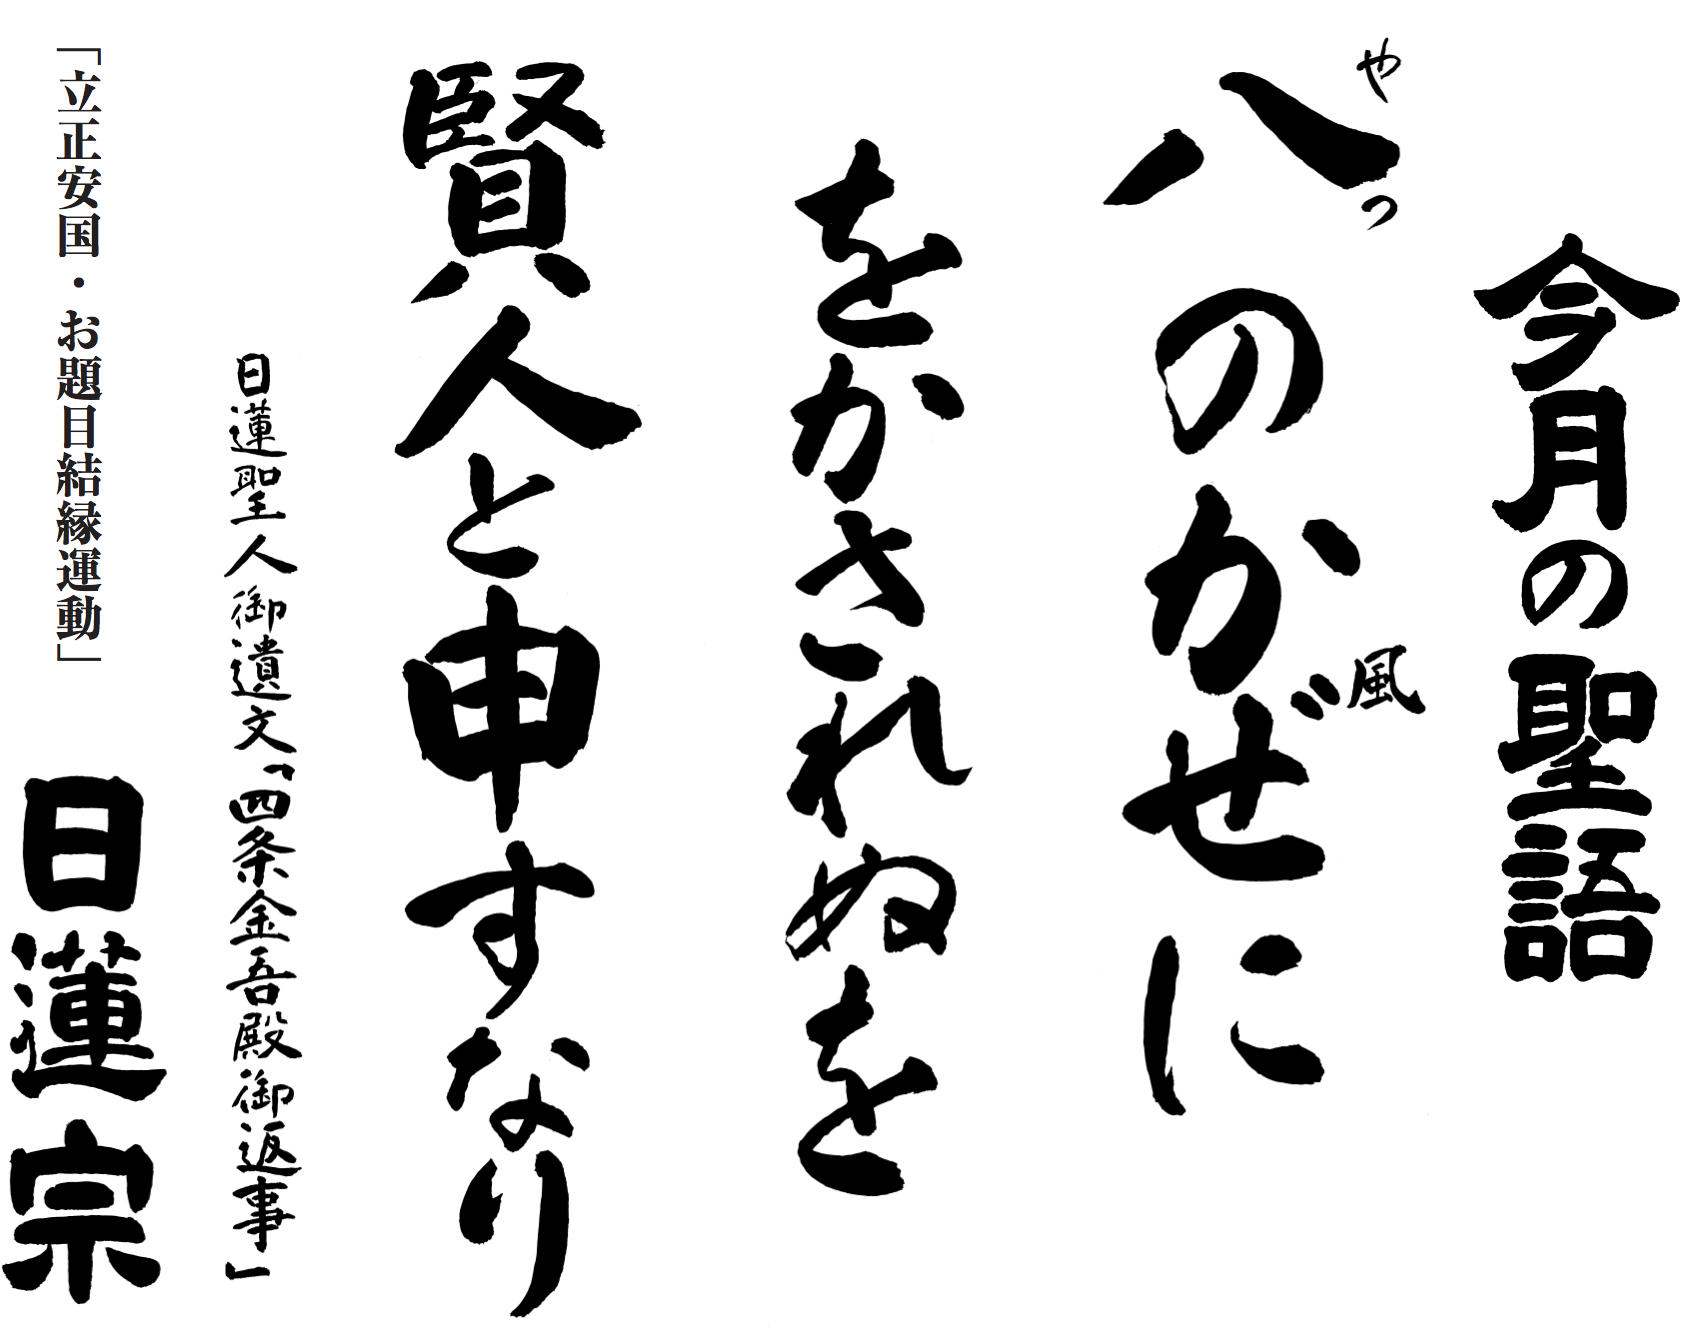 今月の聖語
八のかぜに
やつ
風
をかされぬを
賢人と申すなり
日蓮聖人御遺文「四条金吾殿御返事」
「立正安国・お題目結縁運動」
日蓮宗